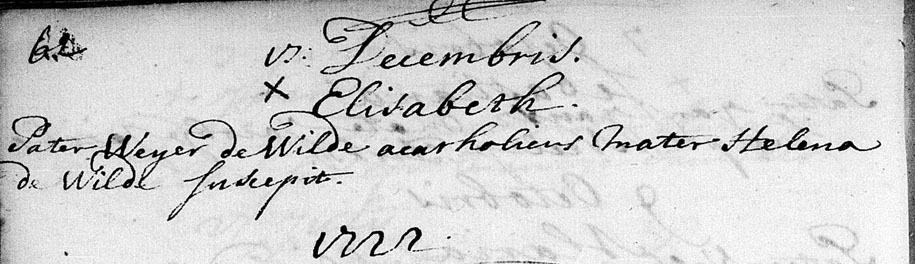 17. Decembris.
× Elisabeth.
Pater Weyer de Wilde acatholicus Mater Helena
de Wilde suscepit.
1722.